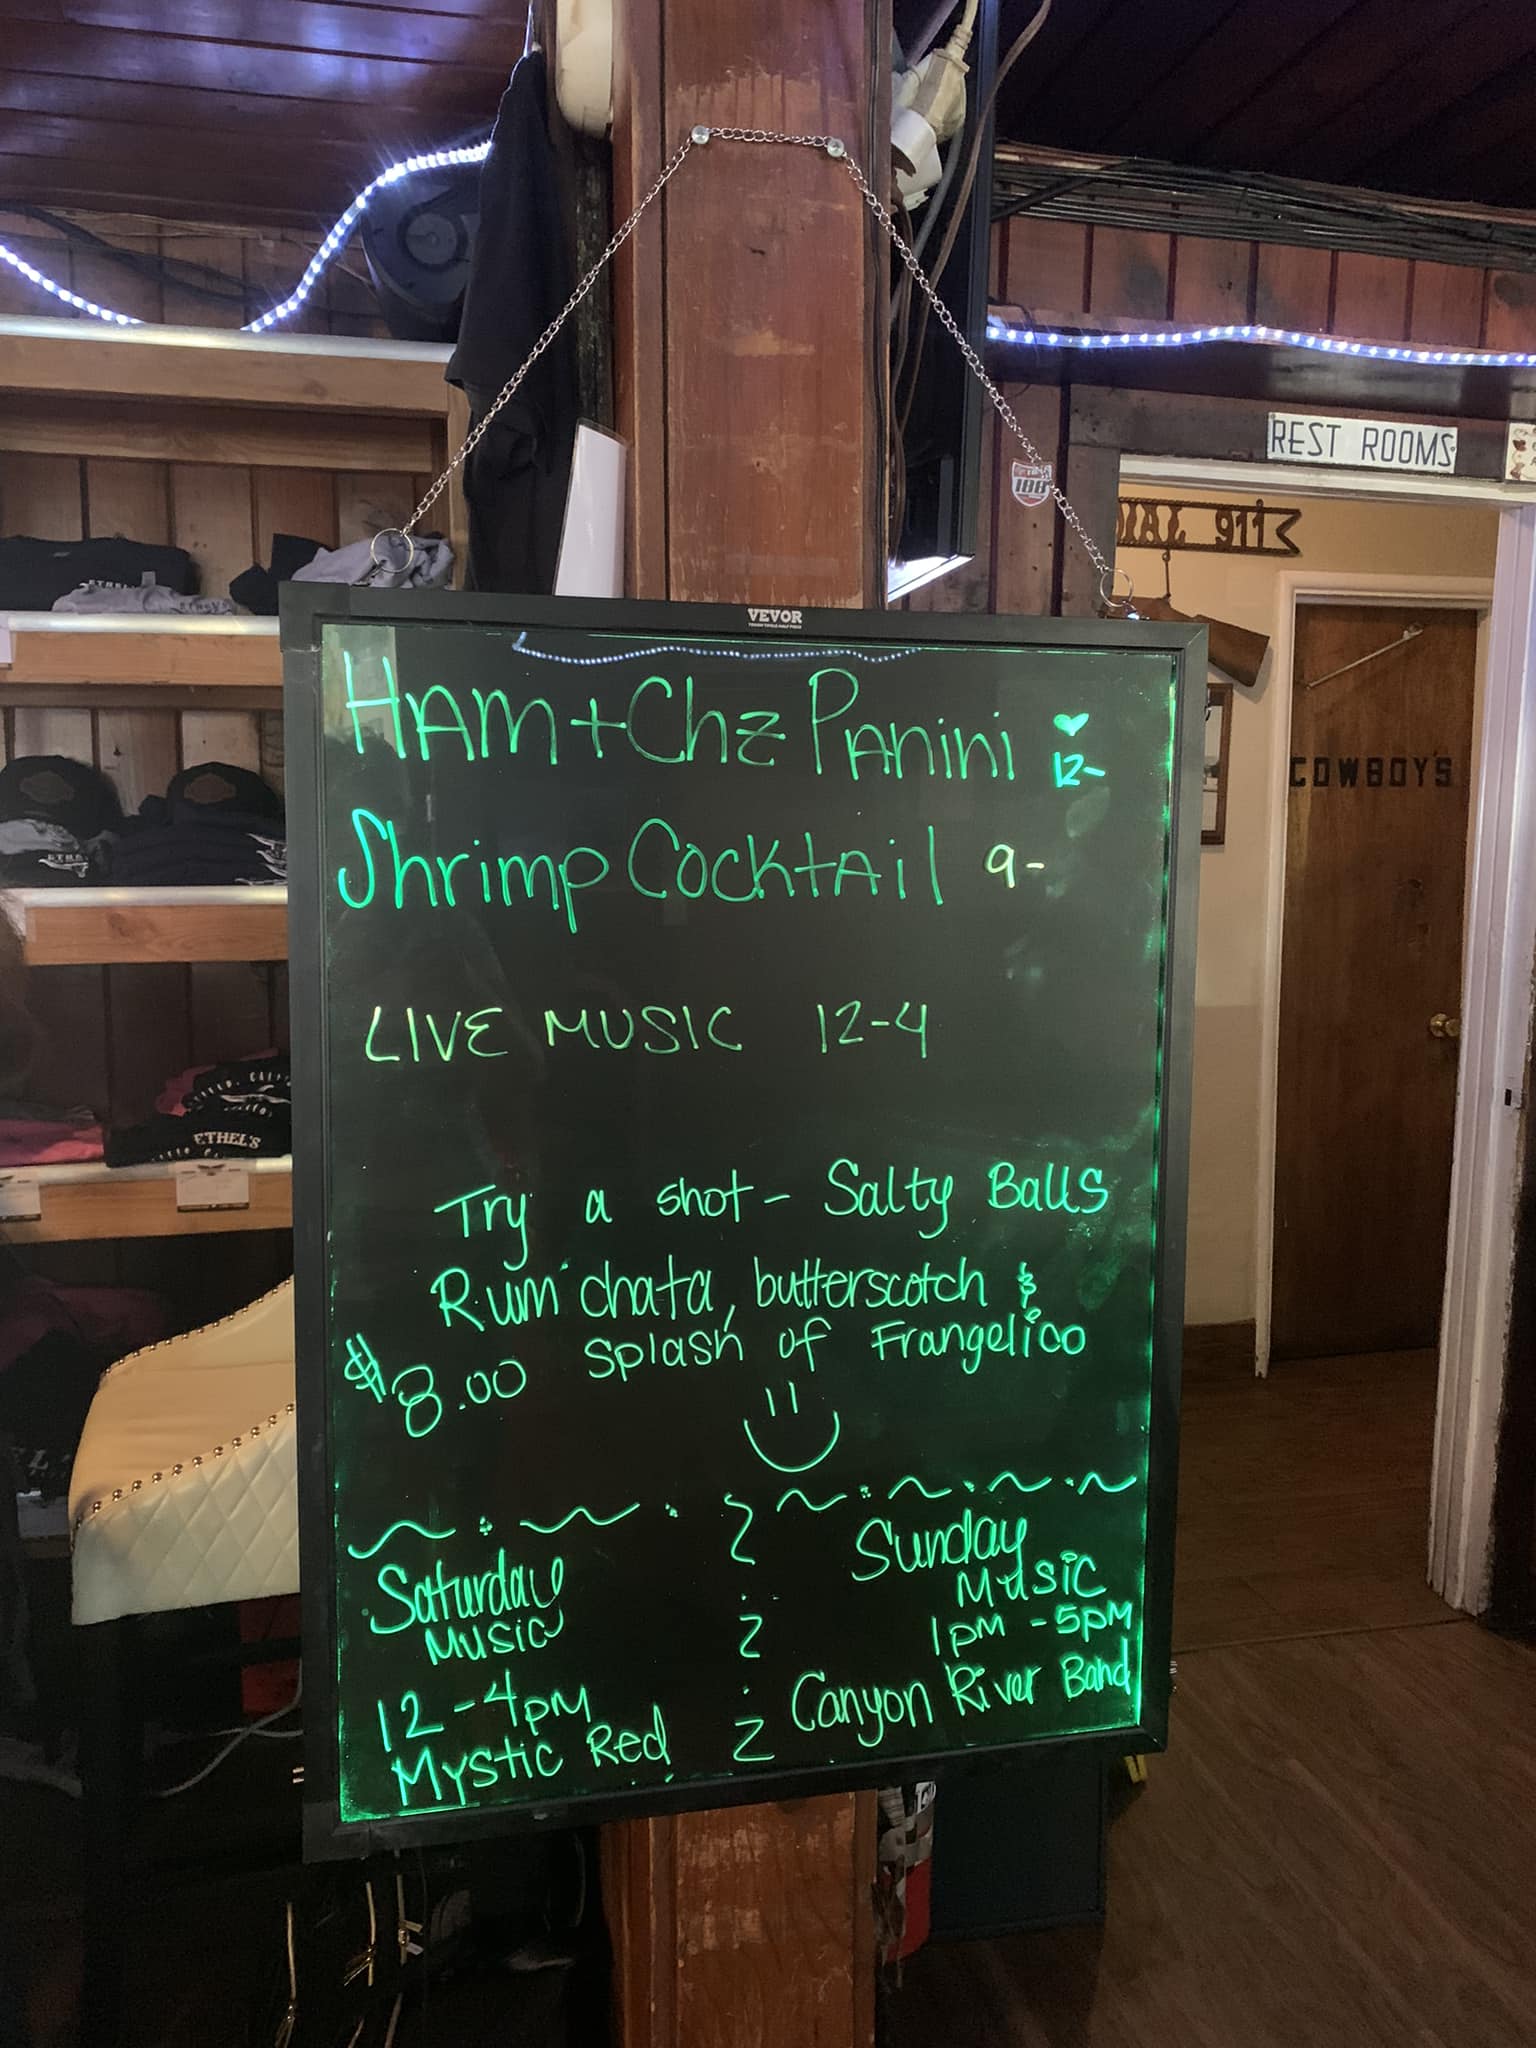 REST ROOMS
DIAL 911
188
VEVOR
COWBOYS
HAM + Chz PANINI ♥ 12-
Shrimp COCKTAIL 9-
LIVE MUSIC 12-4
Try a shot - Salty Balls
Rum chata, butterscotch &
$8.00 splash of Frangelico
Saturday
Music
12-4pm
Mystic Red
Sunday
Music
1pm - 5pm
Canyon River Band
ETHEL'S